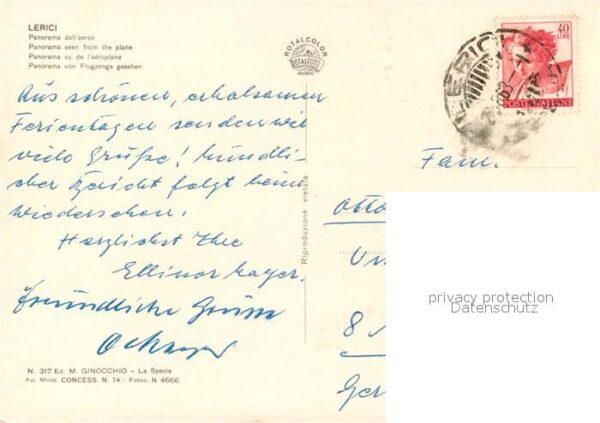 LERICI
Panorama dall'aereo
Panorama seen from the plane
Panorama vu de l'aéroplane
Panorama von Flugzenge gesehen
ROTALCOLOR
ROTALFOTO
MILANO
40
LIRE
POSTE ITALIANE
LERICI
Aus schönen, erholsamen
Ferientagen senden wir
viele Grüße! Mündli-
cher Bericht folgt beim
Wiedersehen.
Herzlichst Ihre
Ellinor Mayer.
freundliche Grüsse
Fam.
Otto
8
Ger
Riproduzione vietata
privacy protection
Datenschutz
N. 317 Ed. M. GINOCCHIO - La Spezia
Aut. Minist. CONCESS. N. 74 - Fotoc. N 4666